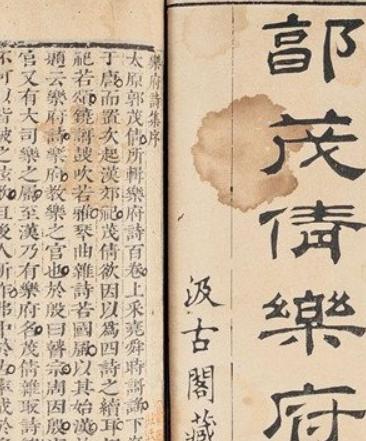 郭茂倩樂府
汲古閣藏
樂府詩集序
太原郭茂倩所輯樂府詩百卷上采堯舜時謌謠下
于唐而置次起漢郊祀茂倩欲因以爲四詩之續耳
祀若頌鐃謌鼓吹若雅琴曲雜詩若國風以其始漢
題云樂府詩樂府教樂之官也於殷曰瞽宗周因殷
官又有大司樂之屬至漢乃有樂府名茂倩雜取詩
不可以皆被之絃歌且後人所作弗中於